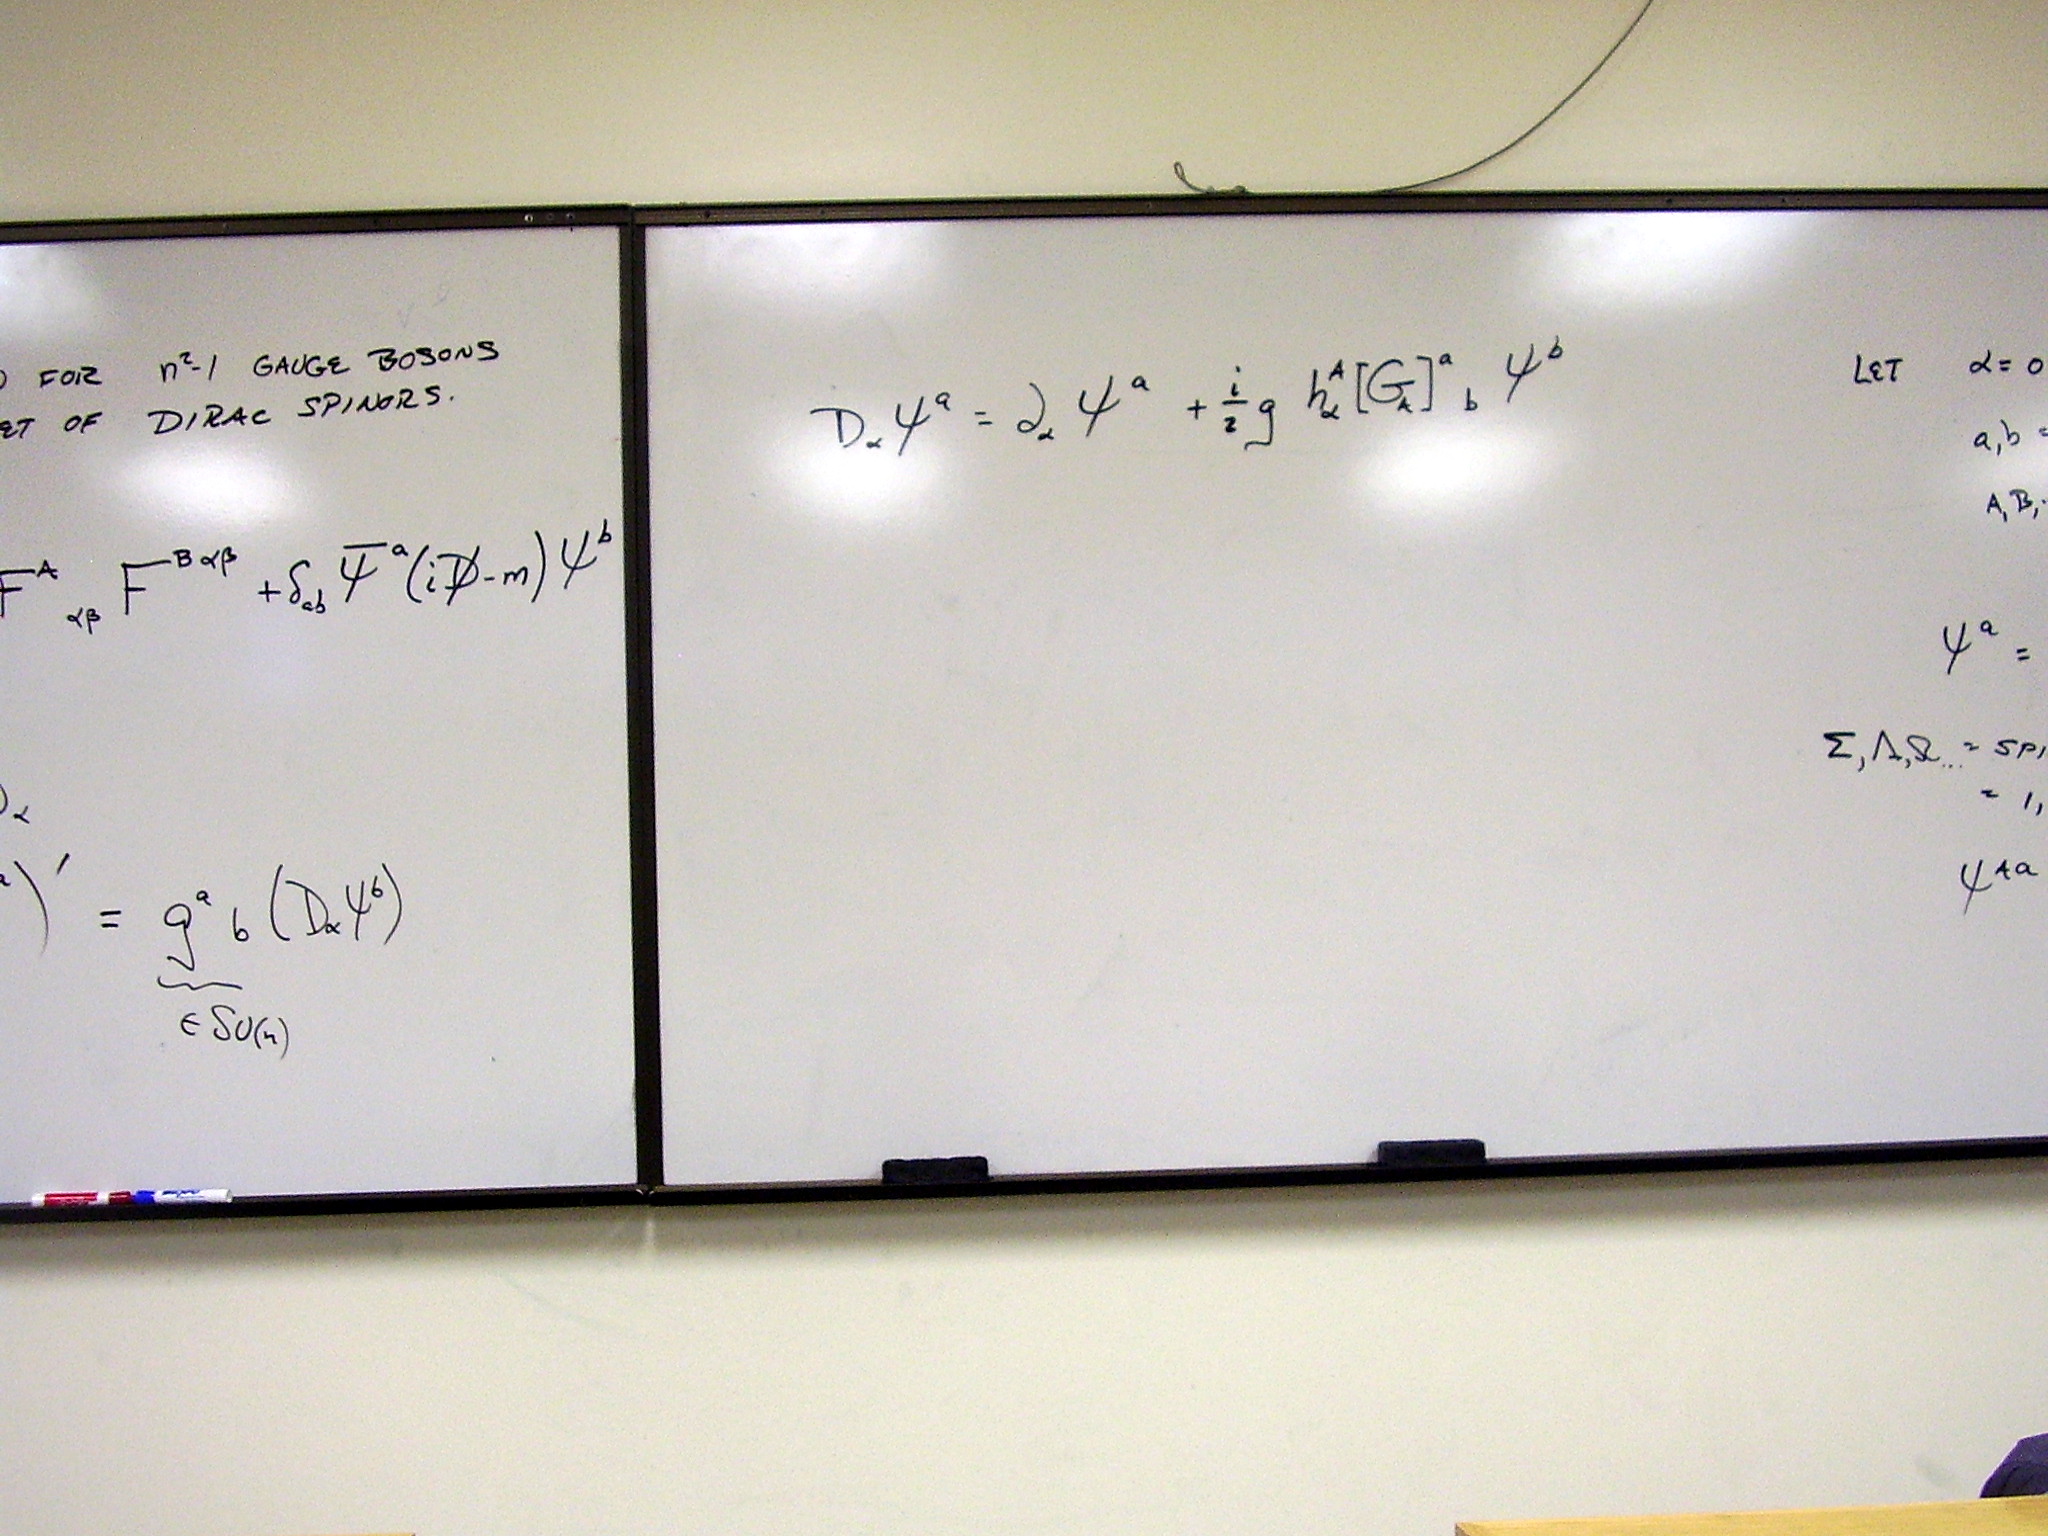 ) FOR n²-1 GAUGE BOSONS
ET OF DIRAC SPINORS.
F^A_{αβ} F^{Bαβ} + δ_{ab} ψ̄^a (iD̸ - m) ψ^b
D_α
a)′ = g^a_b (D_α ψ^b)
∈ SU(n)
D_α ψ^a = ∂_α ψ^a + i/2 g h^A_α [G_A]^a_b ψ^b
LET α = 0
a, b =
A, B,
ψ^a =
Σ, Λ, Ω... = SPI
= 1,
ψ^{Aa}